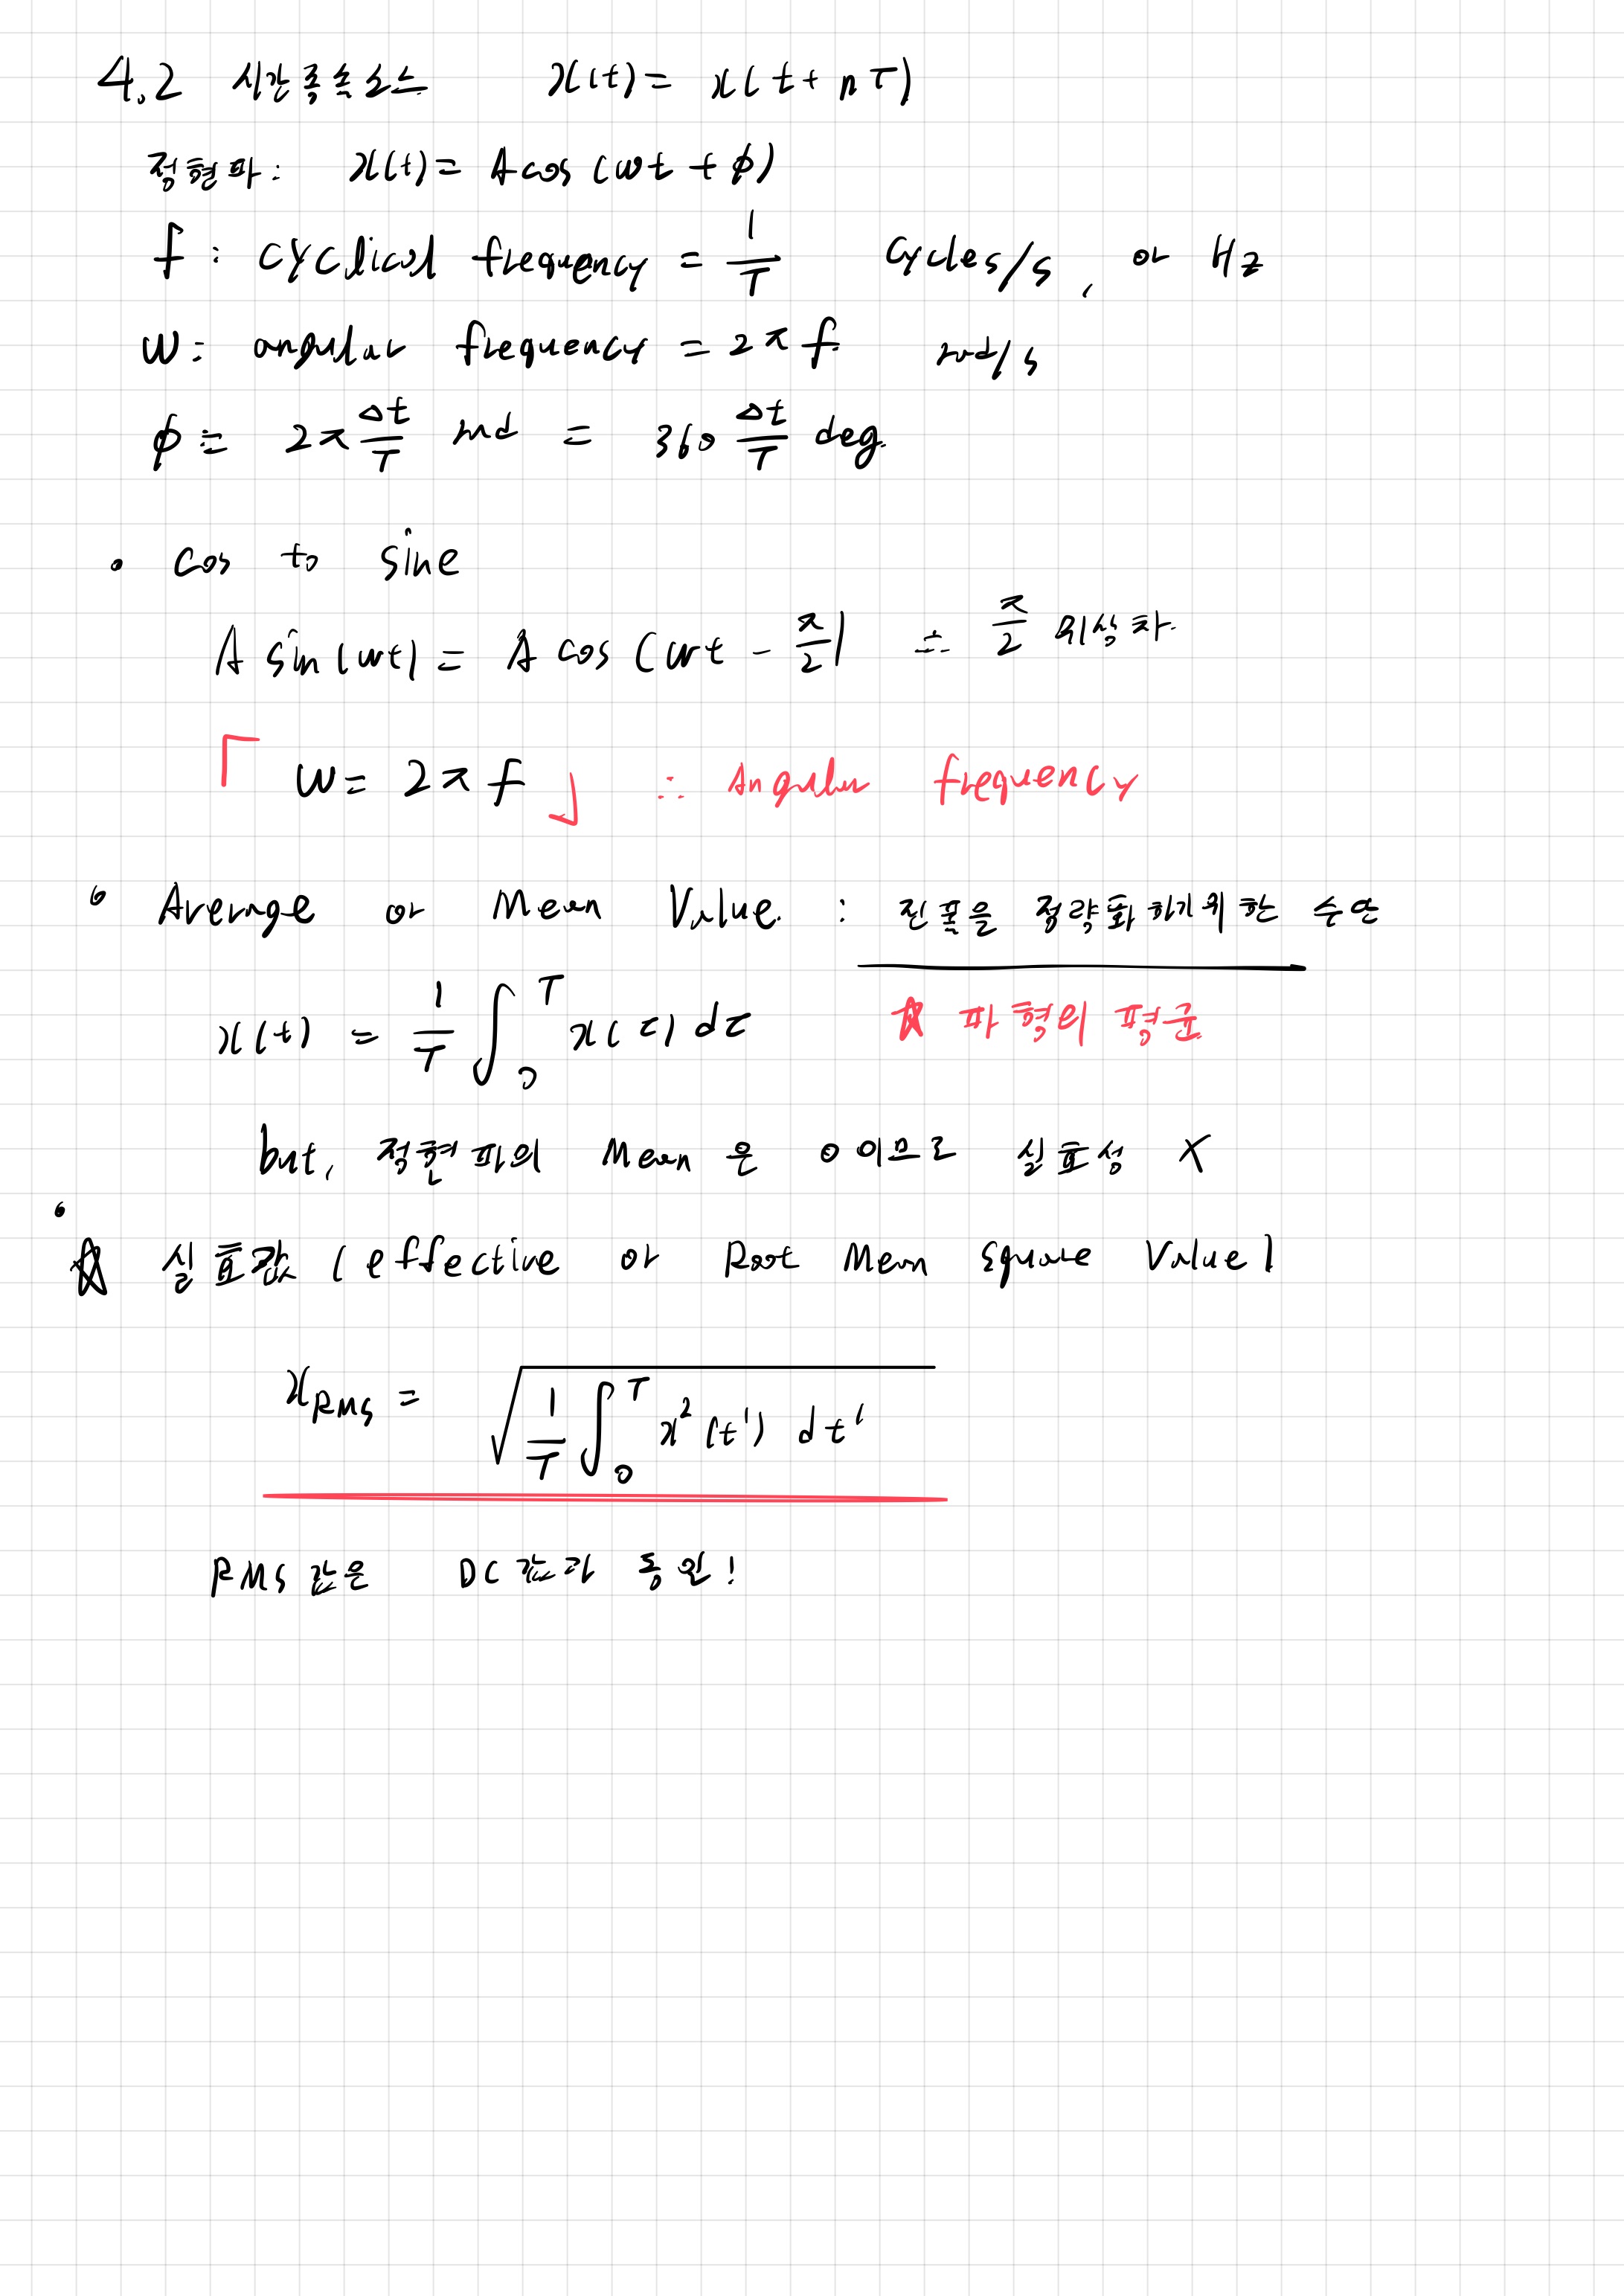 4.2 시간종속소스 x(t) = x(t + nT)
정현파: x(t) = A cos (wt + ϕ)
f : cyclical frequency = 1/T cycles/s, or Hz
w: angular frequency = 2π f rad/s
ϕ = 2π Δt/T rad = 360 Δt/T deg.
• cos to sine
A sin(wt) = A cos (wt - π/2) ∴ π/2 위상차.
「 w = 2π f 」 ∴ Angular frequency
• Average or Mean Value. : 진폭을 정량화 하기 위한 수단
x(t) = 1/T ∫₀ᵀ x(τ) dτ ☆ 파형의 평균
but, 정현파의 Mean 은 0 이므로 실효성 X
•
☆ 실효값 (effective or Root Mean Square Value)
x_RMS = √(1/T ∫₀ᵀ x²(t') dt')
RMS 값은 DC 값과 동일!